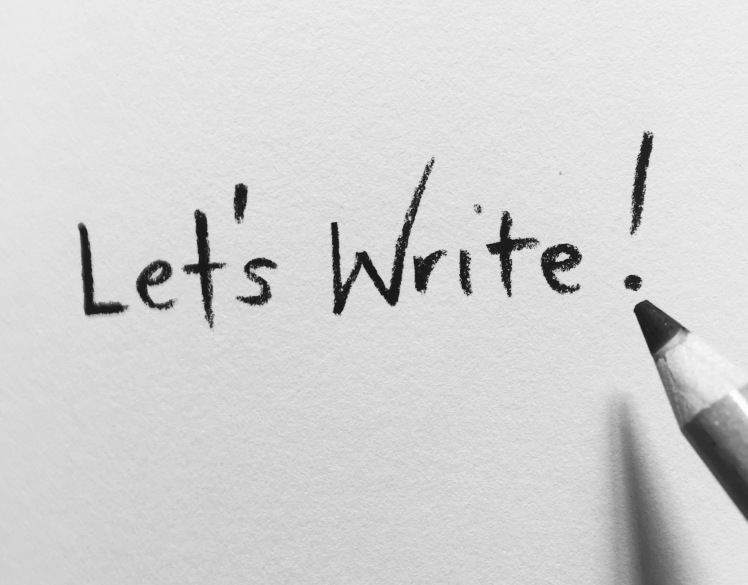 Let's Write!